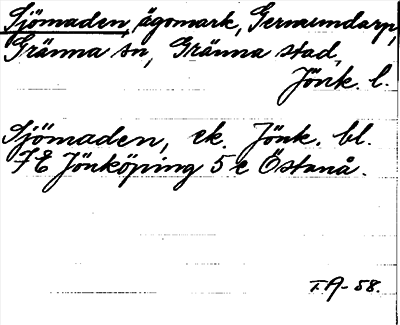 Sjömaden, ägomark, Germundarp,
Gränna sn, Gränna stad,
Jönk. l.
Sjömaden, ek. Jönk. bl.
7 E Jönköping 5 e Östanå.
I.A-58.